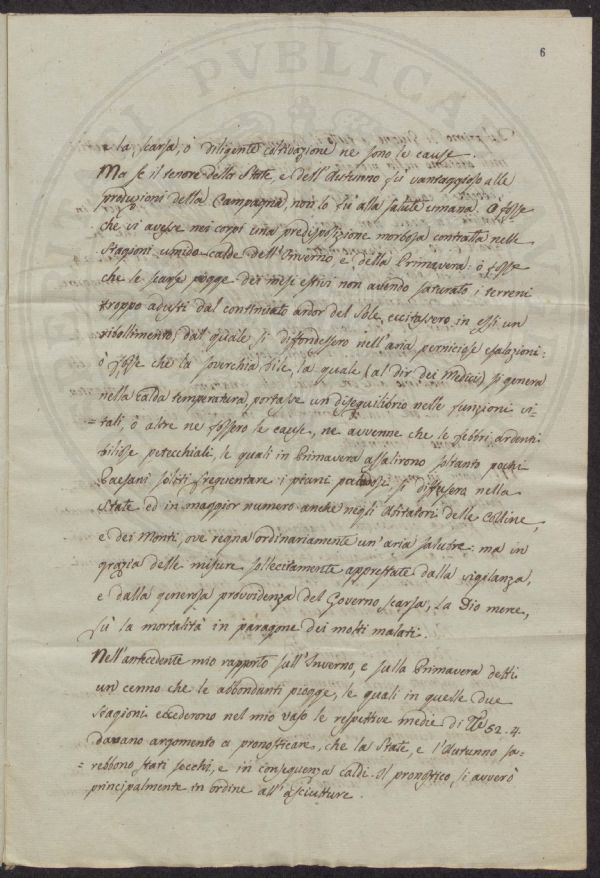 6
e la scarsa, ò diligente coltivazione ne sono le cause.
Ma se il tenore della State, e dell'Autunno fù vantaggioso alle
produzioni della Campagna, non lo fù alla salute umana. O fosse
che vi avesse nei corpi una predisposizione morbosa contratta nelle
Stagioni umido-calde dell'Inverno e della Primavera: ò fosse
che le scarse piogge dei mesi estivi non avendo saturato i terreni
troppo adusti dal continuato ardor del Sole, eccitassero in essi un
ribollimento, dal quale si diffondessero nell'aria perniciose esalazioni:
ò fosse che la soverchia bile, la quale (al dir dei Medici) si genera
nella calda temperatura, portasse un disequilibrio nelle funzioni vi-
=tali, ò altre ne fossero le cause, ne avvenne che le febbri ardenti
biliose petecchiali, le quali in Primavera assalirono soltanto pochi
Paesani soliti frequentare i piani paludosi si diffusero nella
State ed in maggior numero anche negli Abitatori delle Colline,
e dei Monti, ove regna ordinariamente un'aria salubre: ma in
grazia delle misure sollecitamente apprestate dalla vigilanza,
e dalla generosa provvidenza del Governo scarsa, La Dio merce,
fù la mortalità in paragone dei molti malati.
Nell'antecedente mio rapporto sull'Inverno, e sulla Primavera detti
un cenno che le abbondanti piogge, le quali in quelle due
Stagioni eccederono nel mio vaso le respettive medie di 52.4.
davano argomento a pronosticare, che la State, e l'Autunno sa-
=rebbono stati secchi, e in conseguenza caldi. Il pronostico si avverò
principalmente in ordine all'asciutture.
VBLICA